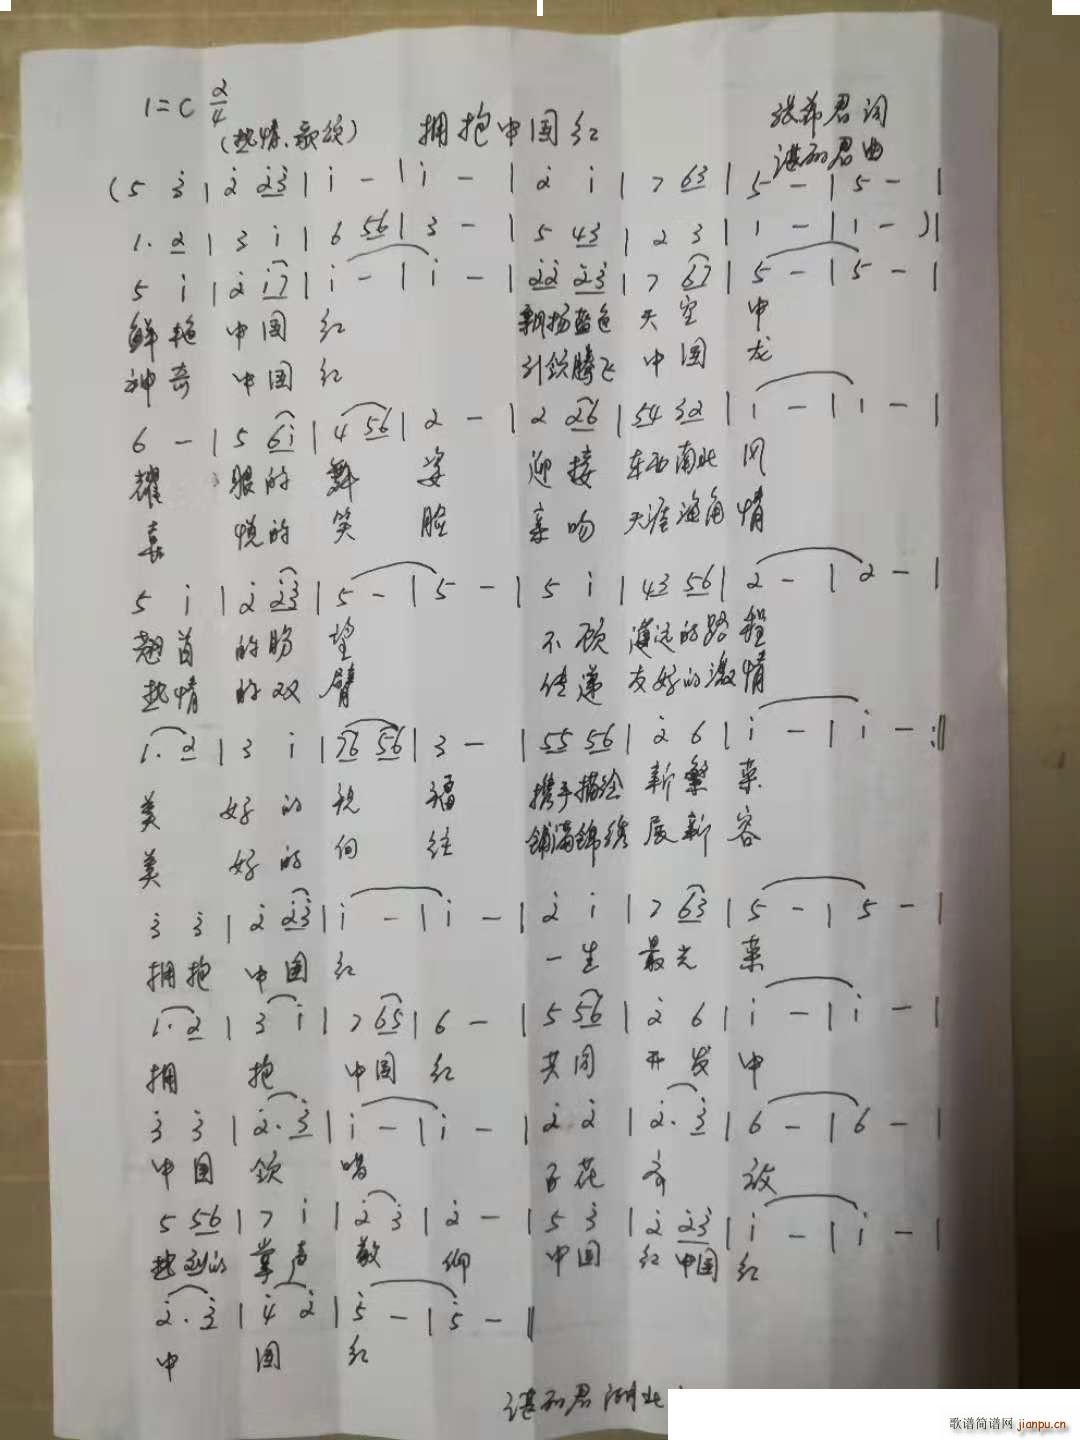 1=C 2/4
(热情、歌颂) 拥抱中国红 张希君词
谌丽君曲
(5 3̇ | 2̇ 2̇3̇ | 1̇ - | 1̇ - | 2̇ 1̇ | 7 63 | 5 - | 5 - |
1. 2 | 3 1̇ | 6 56 | 3 - | 5 43 | 2 3 | 1 - | 1 - )|
5 1̇ | 2̇ 1̇7 | 1̇ - | 1̇ - | 2̇2̇ 2̇3̇ | 7 67 | 5 - | 5 - |
鲜艳 中国 红 飘扬蓝色 天空 中
神奇 中国 红 引领腾飞 中国 龙
6 - | 5 61̇ | 4 56 | 2 - | 2 26 | 54 32 | 1 - | 1 - |
耀 眼的 舞 姿 迎接 东西南北 风
喜 悦的 笑 脸 亲吻 天涯海角 情
5 1̇ | 2̇ 2̇3̇ | 5 - | 5 - | 5 1̇ | 43 56 | 2 - | 2 - |
翘首 的盼 望 不顾 遥远的路 程
热情 的双 臂 传递 友好的激 情
1. 2 | 3 1̇ | 76 56 | 3 - | 55 56 | 2̇ 6 | 1̇ - | 1̇ - :‖
美 好的 祝 福 携手描绘 新繁 荣
美 好的 向 往 铺满锦绣 展新 容
3̇ 3̇ | 2̇ 2̇3̇ | 1̇ - | 1̇ - | 2̇ 1̇ | 7 63 | 5 - | 5 - |
拥抱 中国 红 一生 最光 荣
1. 2 | 3 1̇ | 7 65 | 6 - | 5 56 | 2̇ 6 | 1̇ - | 1̇ - |
拥 抱 中国 红 共同 开发 中
3̇ 3̇ | 2̇. 3̇ | 1̇ - | 1̇ - | 2̇ 2̇ | 2̇. 3̇ | 6 - | 6 - |
中国 领 唱 百花 齐 放
5 56 | 7 1̇ | 2̇ 3̇ | 2̇ - | 5 3̇ | 2̇ 2̇3̇ | 1̇ - | 1̇ - |
热烈的 掌声 敬 仰 中国 红 中国 红
2̇. 3̇ | 4̇ 2̇ | 5̇ - | 5̇ - ‖
中 国 红
谌丽君 湖北
歌谱简谱网 jianpu.cn